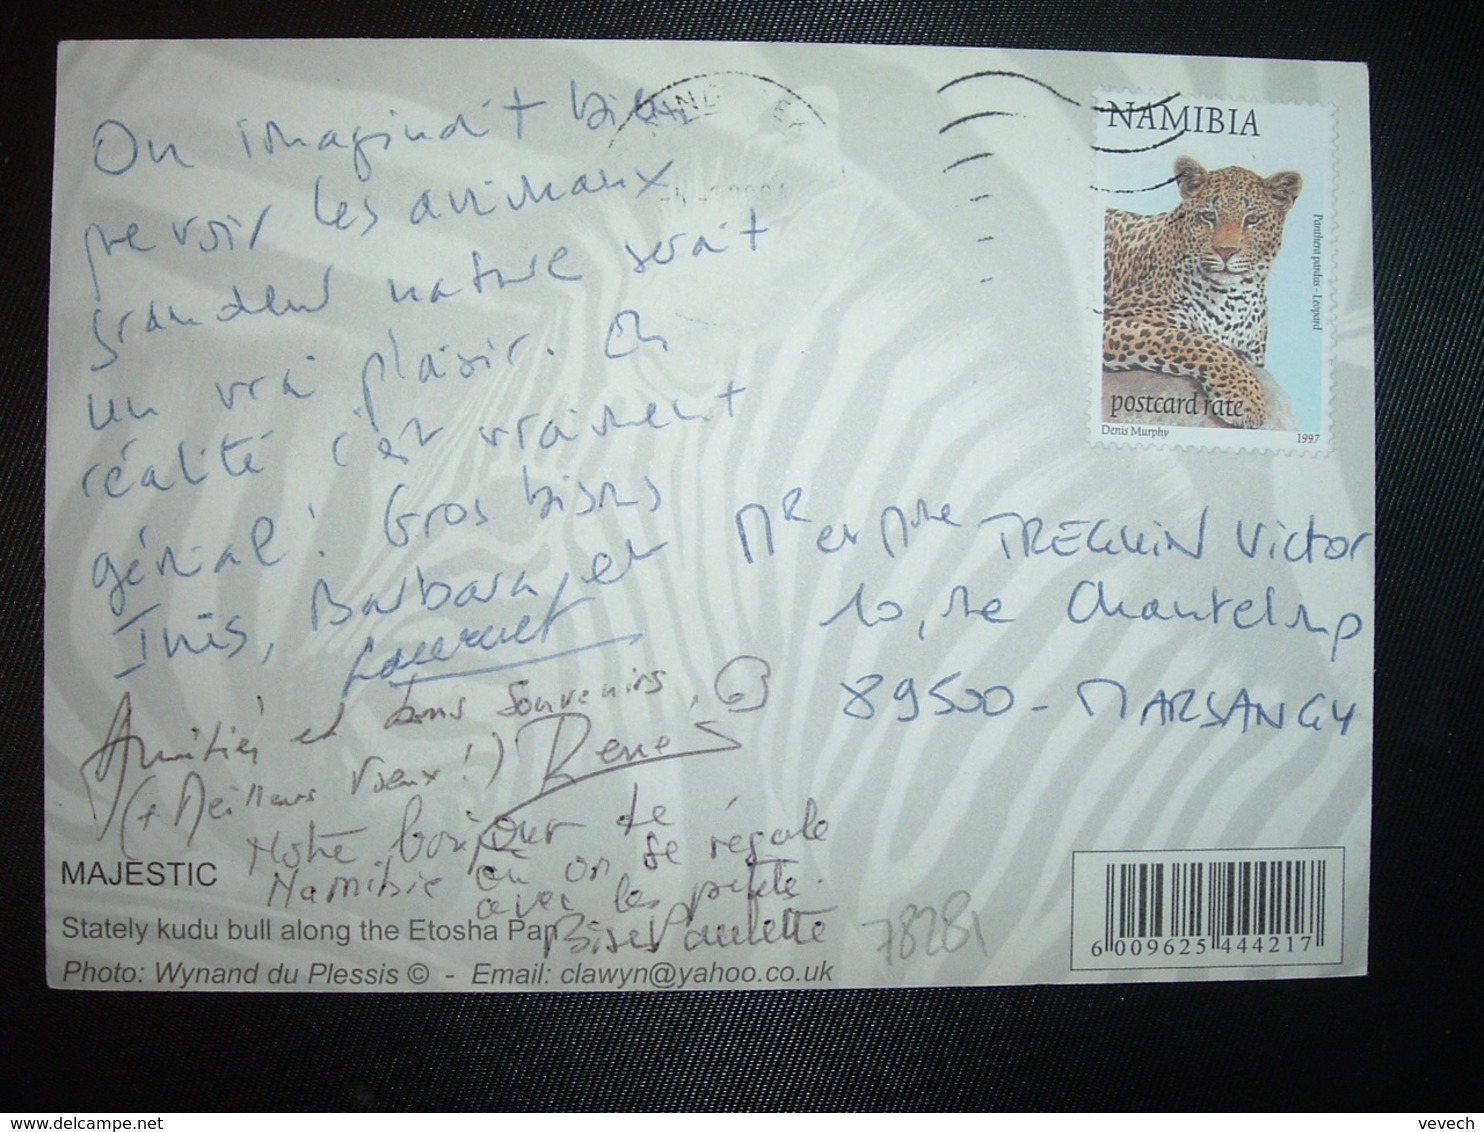 On imaginait bien
que voir les animaux
grandeur nature serait
un vrai plaisir. En
réalité c'est vraiment
génial! Gros bisous
Inès, Barbara, et
Laurent
Amitiés et bons souvenirs,
(+ Meilleurs Vœux!) Renée
Notre bonjour de
Namibie où on se régale
avec les petits.
Bises Paulette
MAJESTIC
Stately kudu bull along the Etosha Pan
Photo: Wynand du Plessis © - Email: clawyn@yahoo.co.uk
NAMIBIA
Panthera pardus - Leopard
postcard rate
Denis Murphy 1997
Mr et Mme TREGUIN Victor
10, rue Chanteloup
89500 - MARSANGY
78281
6 009625 444217
vevech